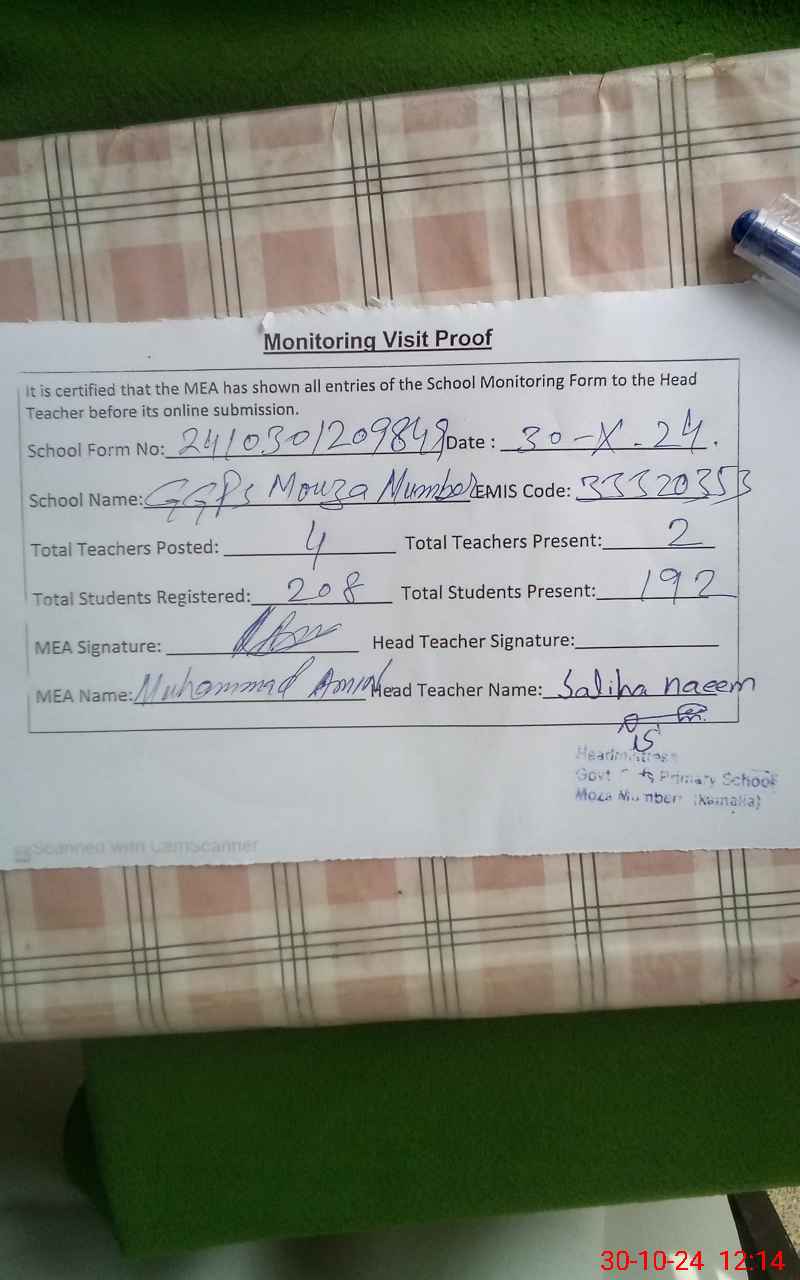 Monitoring Visit Proof
It is certified that the MEA has shown all entries of the School Monitoring Form to the Head
Teacher before its online submission.
School Form No: 2410301209849 Date : 30-X-24.
School Name: GGPS Mouza Mumber EMIS Code: 33320353
Total Teachers Posted: 4 Total Teachers Present: 2
Total Students Registered: 208 Total Students Present: 192
MEA Signature: Head Teacher Signature:
MEA Name: Muhammad Amin Head Teacher Name: Saliha naeem
Headmistress
Govt Primary School
Moza Mumber (Kamalia)
Scanned with CamScanner
30-10-24 12:14